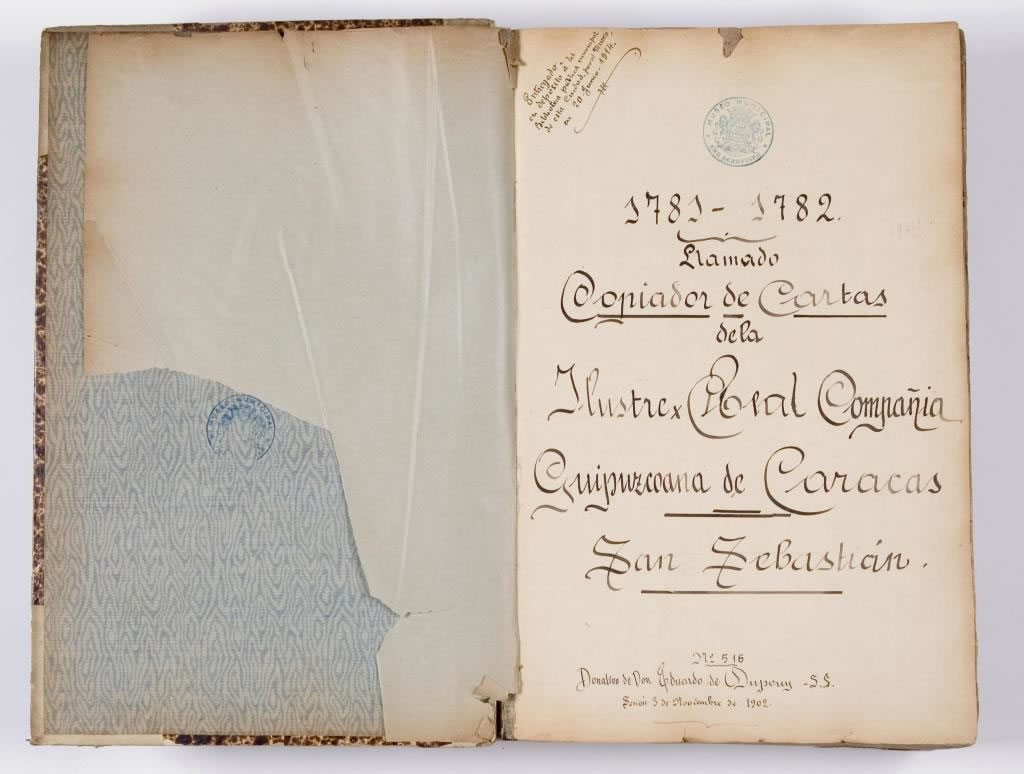 Entregado
en depósito á la
Biblioteca pública municipal
de esta Ciudad, por el Museo,
en 20 Junio - 1914.
MUSEO MUNICIPAL
SAN SEBASTIAN
1781 - 1782.
Llamado
Copiador de Cartas
de la
Ilustre Real Compañia
Guipuzcoana de Caracas
San Sebastián.
Nº 516
Donativo de Don Eduardo de Dupouy - S.S.
Sesión 3 de Noviembre de 1902.
MUSEO MUNICIPAL